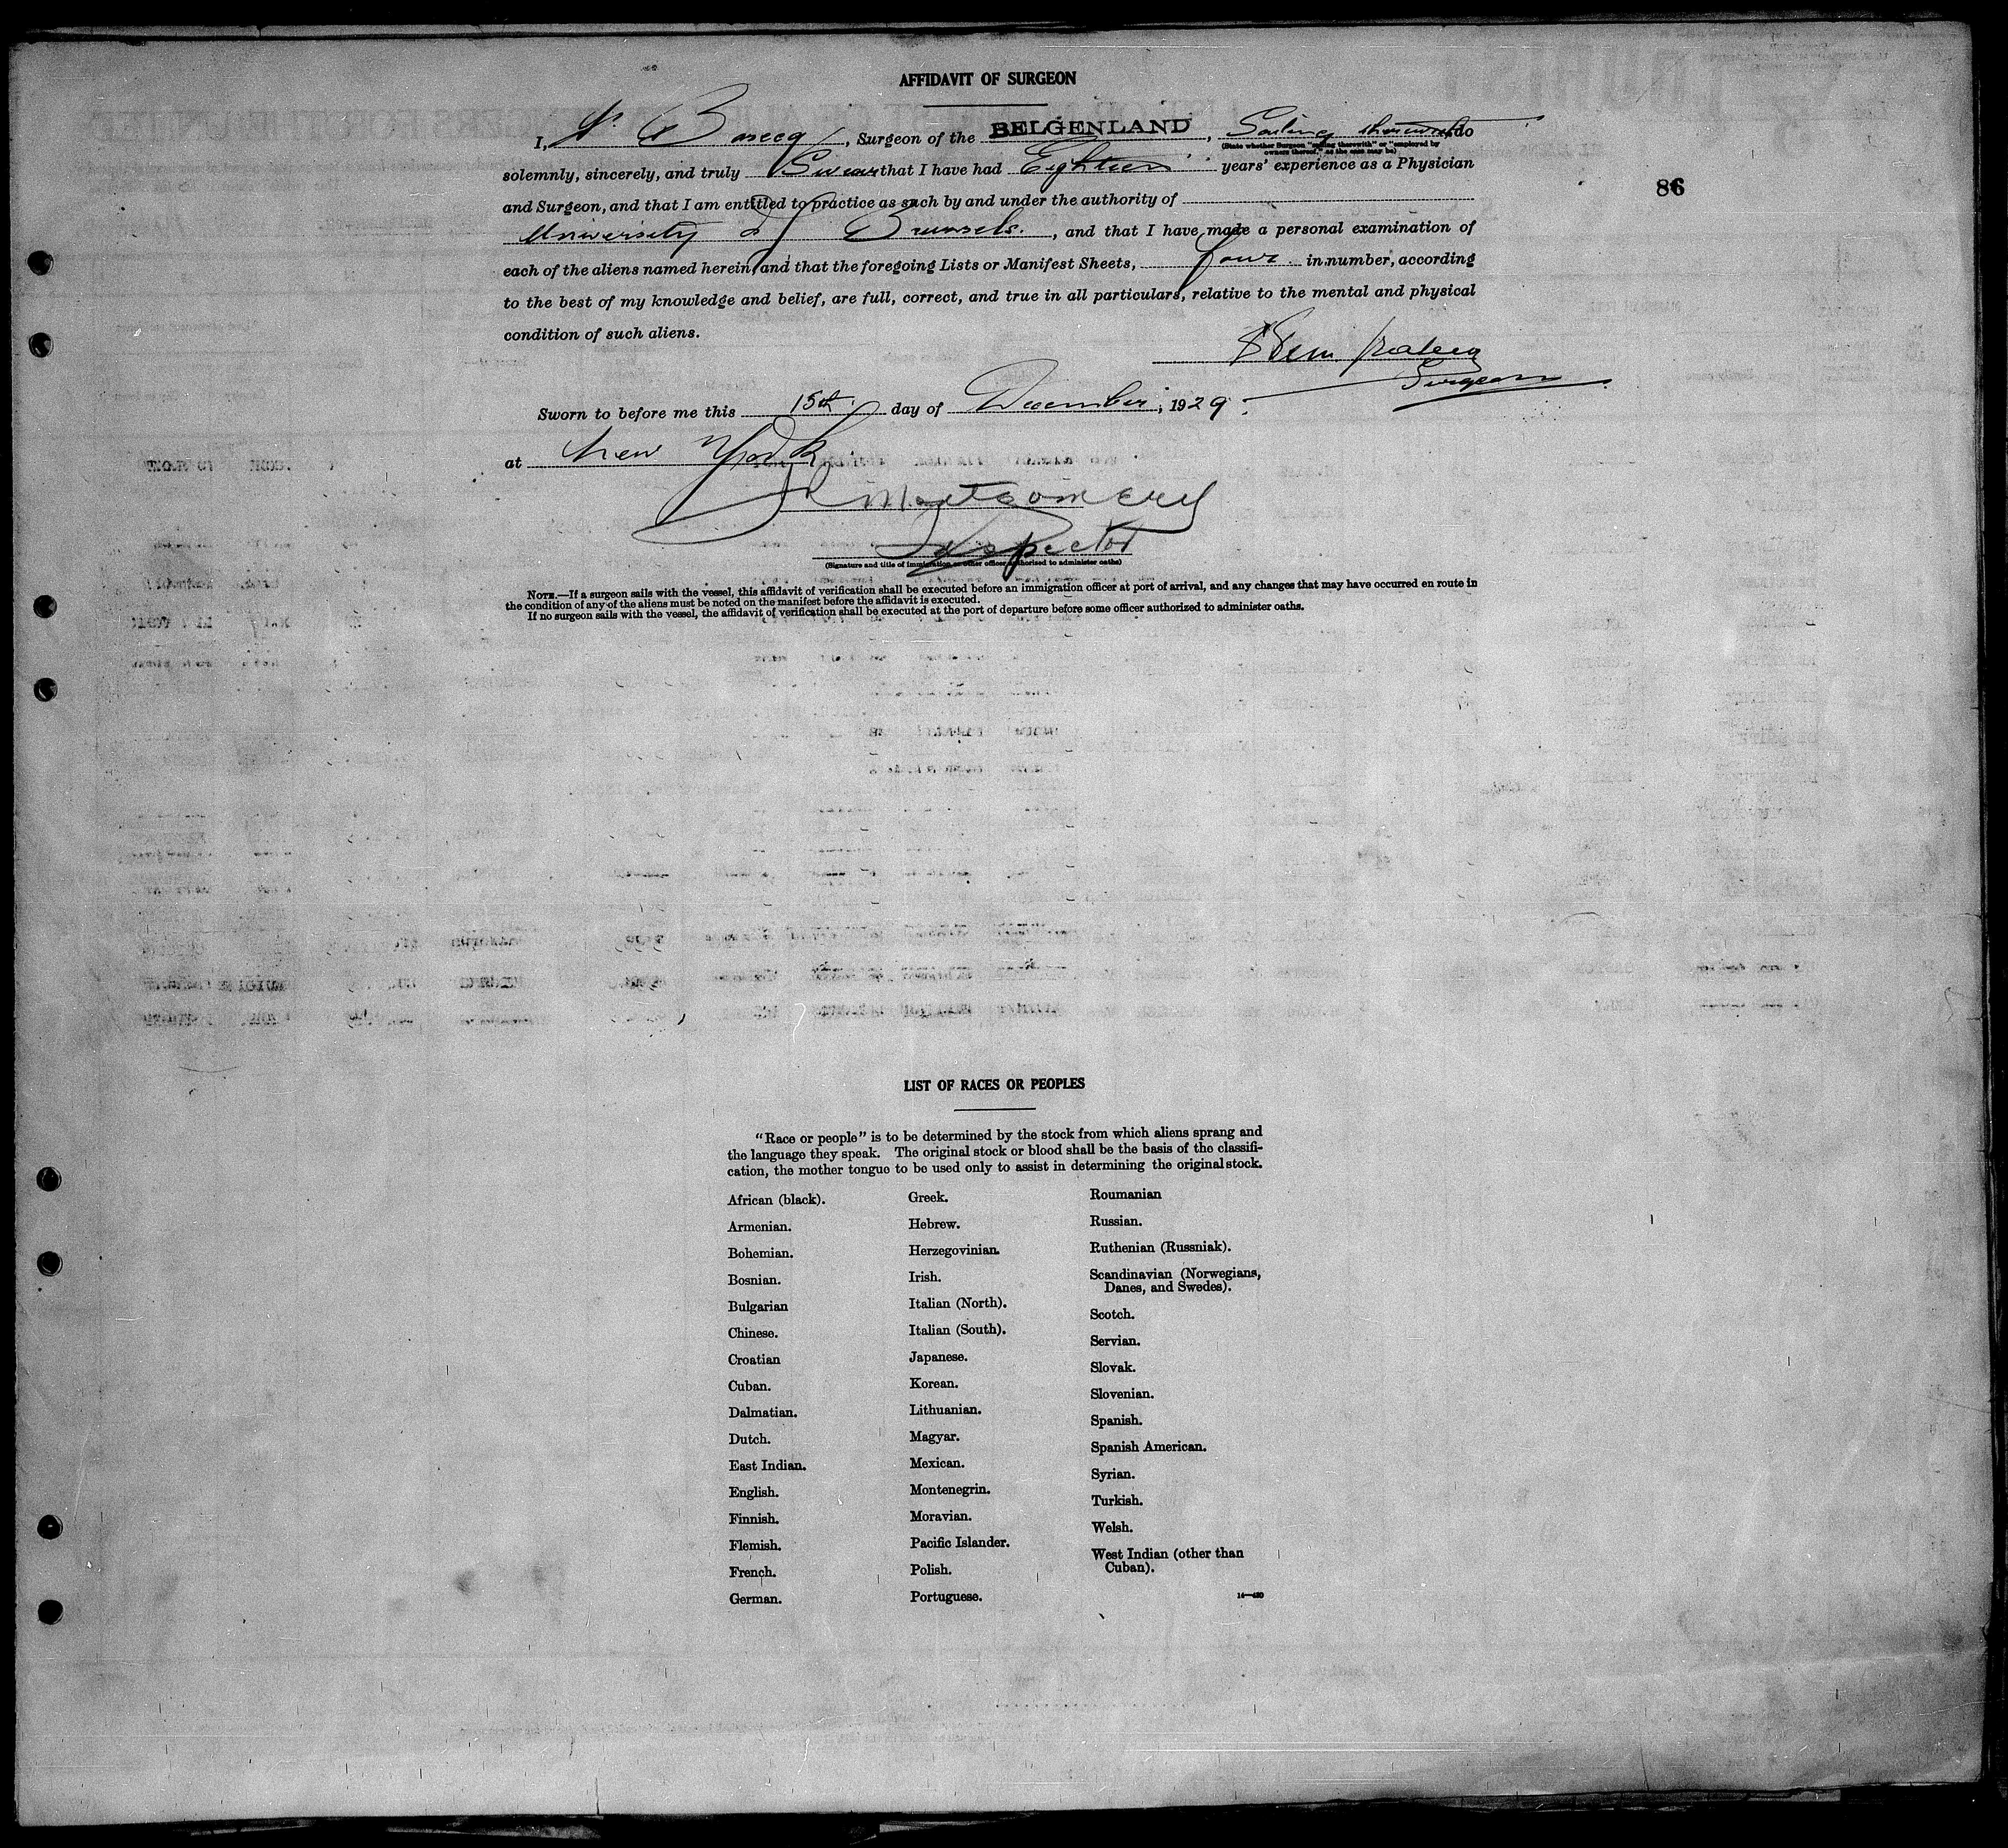 AFFIDAVIT OF SURGEON
I, , Surgeon of the BELGENLAND, Sailing therewith do
(State whether Surgeon "sailing therewith" or "employed by
owners thereof," as the case may be)
solemnly, sincerely, and truly Swear that I have had Eighteen years' experience as a Physician
and Surgeon, and that I am entitled to practice as such by and under the authority of
University of Brussels. , and that I have made a personal examination of
each of the aliens named herein, and that the foregoing Lists or Manifest Sheets, four in number, according
to the best of my knowledge and belief, are full, correct, and true in all particulars, relative to the mental and physical
condition of such aliens.
Surgeon
Sworn to before me this 15th day of December, 1929.
at New York
Montgomery
Inspector
(Signature and title of immigration or other officer authorized to administer oaths)
NOTE.—If a surgeon sails with the vessel, this affidavit of verification shall be executed before an immigration officer at port of arrival, and any changes that may have occurred en route in
the condition of any of the aliens must be noted on the manifest before the affidavit is executed.
If no surgeon sails with the vessel, the affidavit of verification shall be executed at the port of departure before some officer authorized to administer oaths.
86
LIST OF RACES OR PEOPLES
"Race or people" is to be determined by the stock from which aliens sprang and
the language they speak. The original stock or blood shall be the basis of the classifi-
cation, the mother tongue to be used only to assist in determining the original stock.
African (black).
Armenian.
Bohemian.
Bosnian.
Bulgarian
Chinese.
Croatian
Cuban.
Dalmatian.
Dutch.
East Indian.
English.
Finnish.
Flemish.
French.
German.
Greek.
Hebrew.
Herzegovinian.
Irish.
Italian (North).
Italian (South).
Japanese.
Korean.
Lithuanian.
Magyar.
Mexican.
Montenegrin.
Moravian.
Pacific Islander.
Polish.
Portuguese.
Roumanian
Russian.
Ruthenian (Russniak).
Scandinavian (Norwegians,
Danes, and Swedes).
Scotch.
Servian.
Slovak.
Slovenian.
Spanish.
Spanish American.
Syrian.
Turkish.
Welsh.
West Indian (other than
Cuban).